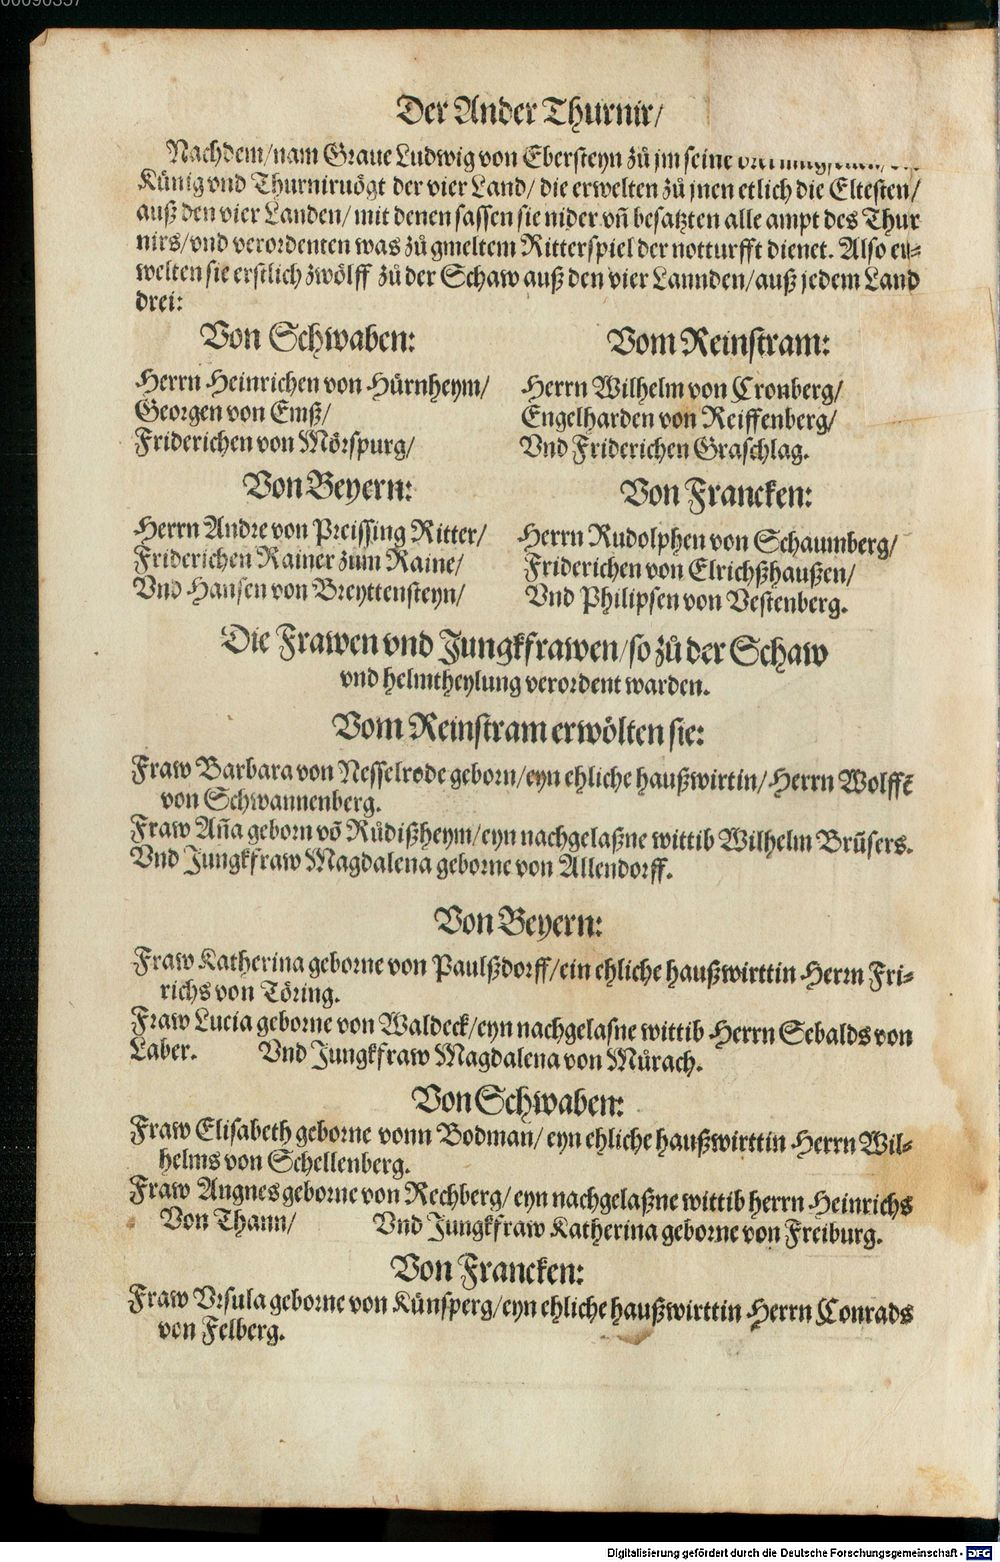 00090357
Der Ander Thurnir/
Nachdem/nam Graue Ludwig von Ebersteyn zů jm seine
Künig vnd Thurniruögt der vier Land/ die erwelten zů jnen etlich die Eltesten/
auß den vier Landen/ mit denen sassen sie nider vñ besatzten alle ampt des Thur
nirs/vnd verordenten was zů gmeltem Ritterspiel der notturfft dienet. Also er⸗
welten sie erstlich zwölff zů der Schaw auß den vier Lannden/auß jedem Land
drei:
Von Schwaben:
Herrn Heinrichen von Hürnheym/
Georgen von Emß/
Friderichen von Mörspurg/
Vom Reinstram:
Herrn Wilhelm von Cronberg/
Engelharden von Reiffenberg/
Vnd Friderichen Graschlag.
Von Beyern:
Herrn Andre von Preissing Ritter/
Friderichen Rainer zum Raine/
Vnd Hansen von Breyttensteyn/
Von Francken:
Herrn Rudolphen von Schaumberg/
Friderichen von Elrichßhaußen/
Vnd Philipsen von Vestenberg.
Die Frawen vnd Jungkfrawen/so zů der Schaw
vnd helmtheylung verordent warden.
Vom Reinstram erwölten sie:
Fraw Barbara von Nesselrode geborn/eyn ehliche haußwirtin/Herrn Wolffẽ
von Schwannenberg.
Fraw Añа geborn võ Rüdißheym/eyn nachgelaßne wittib Wilhelm Brũsers.
Vnd Jungkfraw Magdalena geborne von Allendorff.
Von Beyern:
Fraw Katherina geborne von Paulßdorff/ein ehliche haußwirttin Herrn Fri⸗
richs von Töring.
Fraw Lucia geborne von Waldeck/eyn nachgelasne wittib Herrn Sebalds von
Laber. Vnd Jungkfraw Magdalena von Mürach.
Von Schwaben:
Fraw Elisabeth geborne vonn Bodman/ eyn ehliche haußwirttin Herrn Wil⸗
helms von Schellenberg.
Fraw Angnes geborne von Rechberg/eyn nachgelaßne wittib herrn Heinrichs
Von Thann/ Vnd Jungkfraw Katherina geborne von Freiburg.
Von Francken:
Fraw Vrsula geborne von Künsperg/eyn ehliche haußwirttin Herrn Conrads
von Felberg.
Digitalisierung gefördert durch die Deutsche Forschungsgemeinschaft - DFG